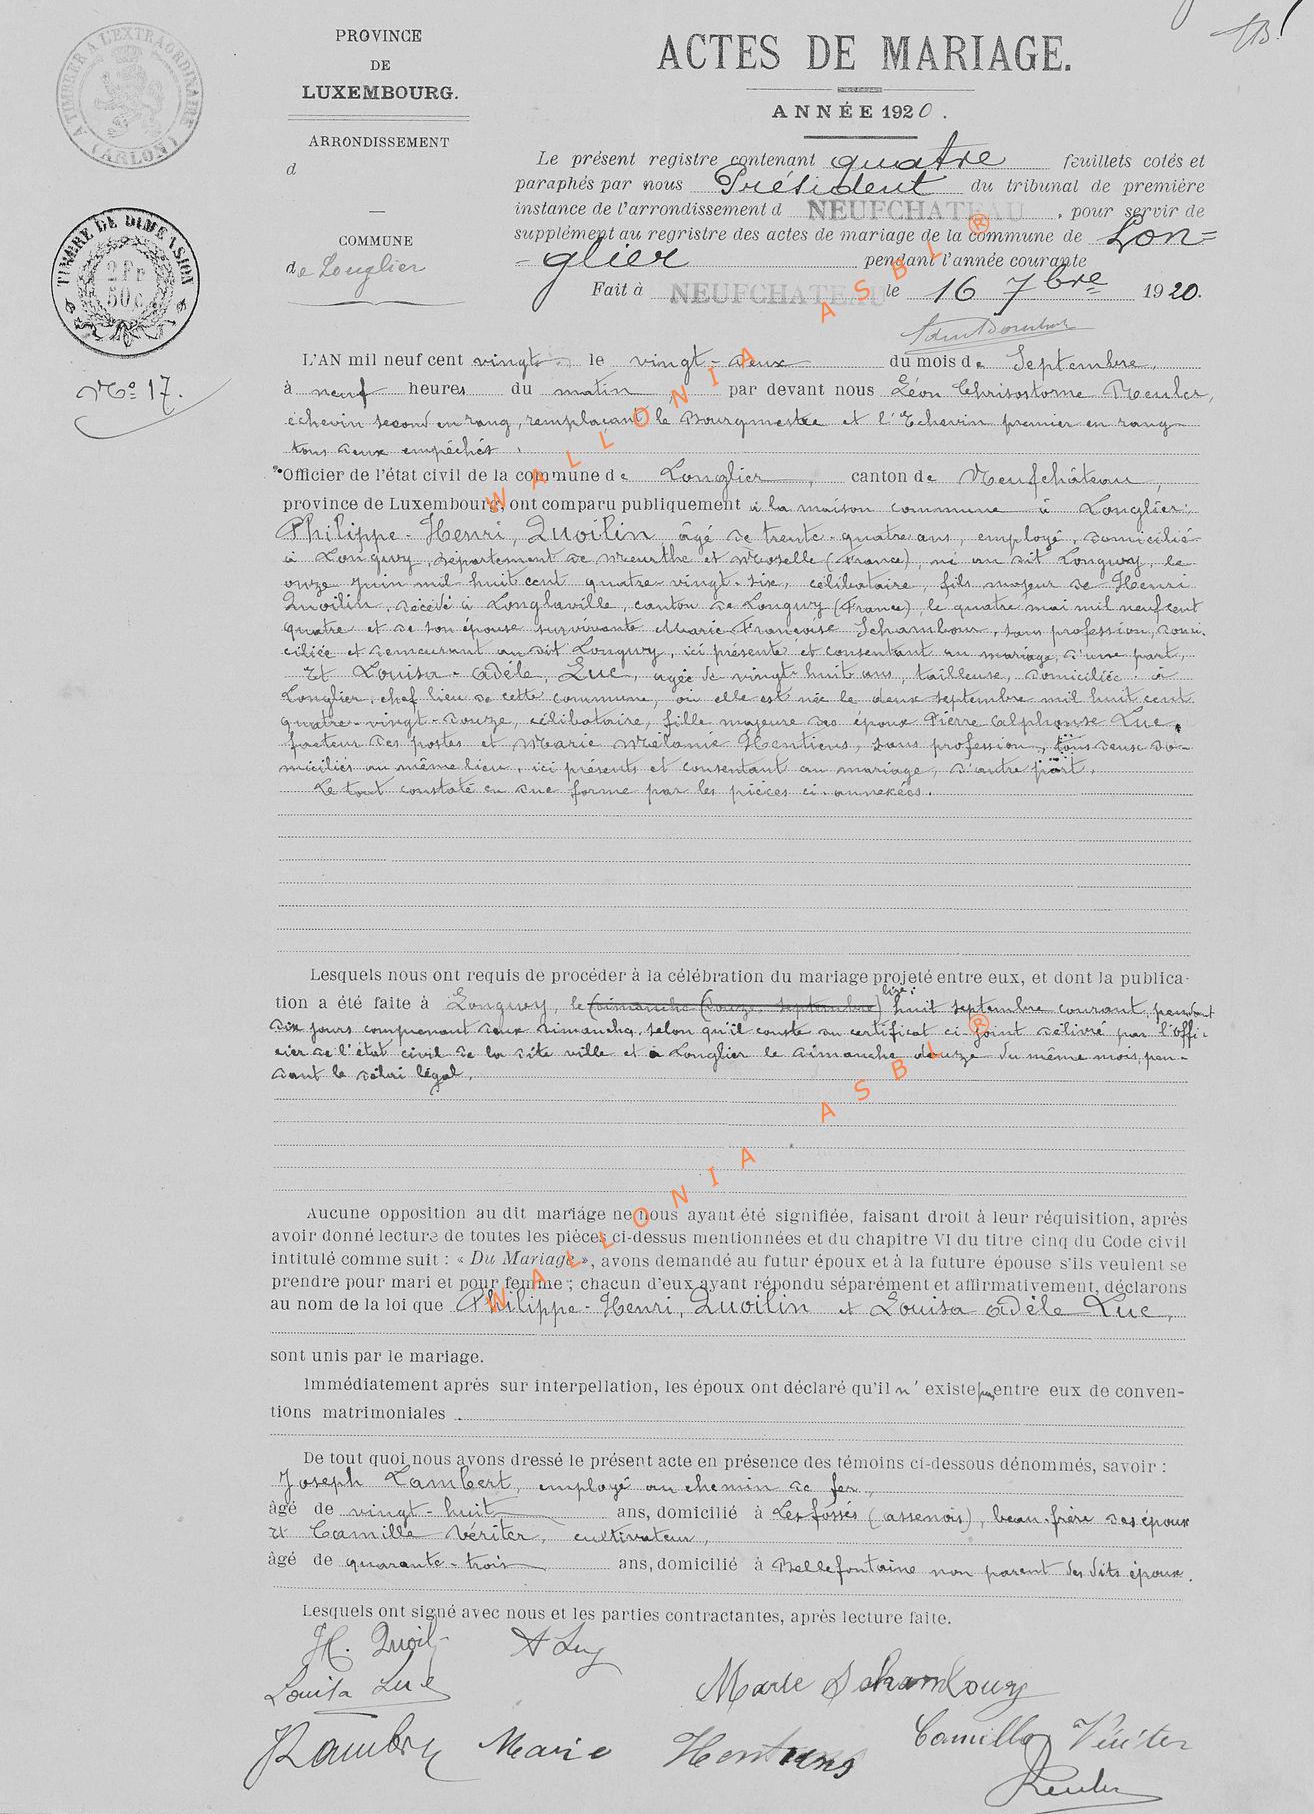 PROVINCE
DE
LUXEMBOURG.
ARRONDISSEMENT
d
COMMUNE
de Longlier
A TIMBRER A L'EXTRAORDINAIRE (ARLON)
TIMBRE DE DIMENSION
2 Fr
50 c
No 17.
ACTES DE MARIAGE.
ANNÉE 1920.
Le présent registre contenant quatre feuillets cotés et
paraphés par nous Président du tribunal de première
instance de l'arrondissement d NEUFCHATEAU, pour servir de
supplément au regristre des actes de mariage de la commune de Lon=
-glier pendant l'année courante
Fait à NEUFCHATEAU le 16 7bre 1920.
L'AN mil neuf cent vingt le vingt-deux du mois de Septembre,
à neuf heures du matin par devant nous Léon Chrisostome Reuler,
échevin second en rang, remplaçant le Bourgmestre et l'Echevin premier en rang
tous deux empêchés,
Officier de l'état civil de la commune de Longlier, canton de Neufchâteau,
province de Luxembourg, ont comparu publiquement à la maison commune à Longlier:
Philippe-Henri, Quoilin âgé de trente-quatre ans, employé, domicilié
à Longwy, département de Meurthe et Moselle (France), né au dit Longwy, le
onze juin mil huit cent quatre-vingt-six, célibataire, fils majeur de Henri
Quoilin, décédé à Longlaville, canton de Longwy (France), le quatre mai mil neuf cent
quatre et de son épouse survivante Marie-Françoise Schambour, sans profession, domi-
ciliée et demeurant au dit Longwy, ici présente et consentant au mariage, d'une part,
Et Louisa-Adèle, Luc, agée de vingt-huit ans, tailleuse, domiciliée à
Longlier, chef lieu de cette commune, où elle est née le deux septembre mil huit cent
quatre-vingt-douze, célibataire, fille majeure des époux Pierre Alphonse Luc,
facteur des postes et Marie Mélanie Hentiens, sans profession, tous deux do-
miciliés au même lieu, ici présents et consentant au mariage, d'autre part.
Le tout constaté en due forme par les pièces ci-annexées.
Lesquels nous ont requis de procéder à la célébration du mariage projeté entre eux, et dont la publica-
tion a été faite à Longwy, le (dimanche (douze septembre) lire: huit septembre courant, pendant
dix jours comprenant deux dimanches, selon qu'il conste du certificat ci-joint délivré par l'offi-
cier de l'état civil de la dite ville et à Longlier le dimanche douze du même mois, pen-
dant le délai légal.
Aucune opposition au dit mariage ne nous ayant été signifiée, faisant droit à leur réquisition, après
avoir donné lecture de toutes les pièces ci-dessus mentionnées et du chapitre VI du titre cinq du Code civil
intitulé comme suit : « Du Mariage », avons demandé au futur époux et à la future épouse s'ils veulent se
prendre pour mari et pour femme ; chacun d'eux ayant répondu séparément et affirmativement, déclarons
au nom de la loi que Philippe-Henri, Quoilin et Louisa Adèle Luc,
sont unis par le mariage.
Immédiatement après sur interpellation, les époux ont déclaré qu'il n'existe pas entre eux de conven-
tions matrimoniales.
De tout quoi nous avons dressé le présent acte en présence des témoins ci-dessous dénommés, savoir :
Joseph Lambert, employé au chemin de fer,
âgé de vingt-huit ans, domicilié à Les fossés (assenois), beau-frère des époux
et Camille Vériter, cultivateur,
âgé de quarante-trois ans, domicilié à Bellefontaine non parent des dits époux.
Lesquels ont signé avec nous et les parties contractantes, après lecture faite.
H. Quoilin A Luc
Louisa Luc Marie Schambour
JLambert Marie Hentiens Camille Vériter
Reuler
WALLONIA ASBL ®
WALLONIA ASBL ®